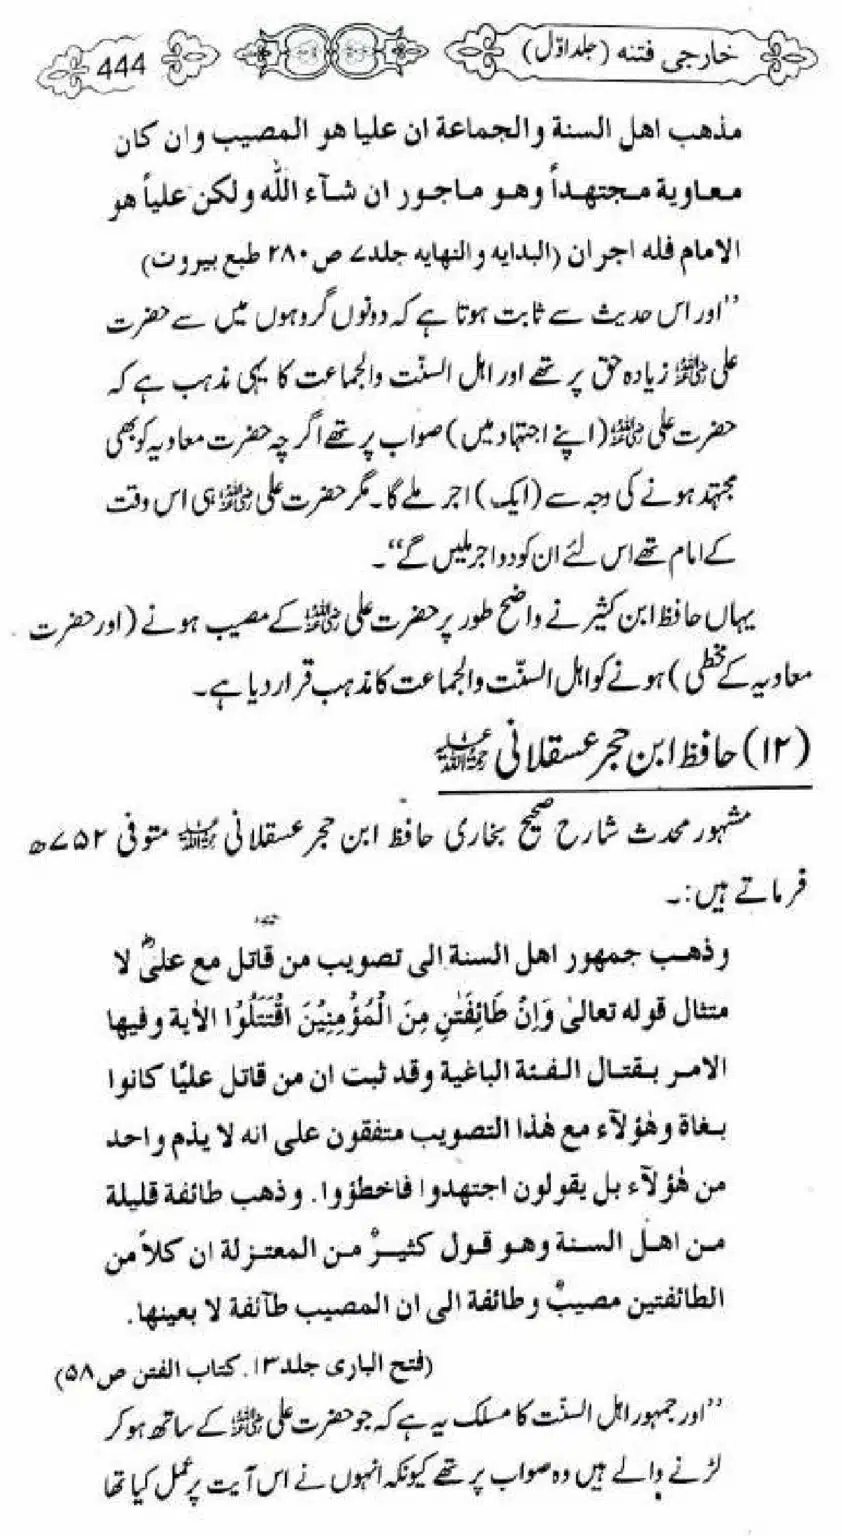 خارجی فتنہ (جلد اوّل)
444
مذهب اهل السنة والجماعة ان عليا هو المصيب وان كان
معاوية مجتهداً وهو ماجور ان شآء الله ولكن علياً هو
الامام فله اجران (البدايه والنهايه جلد۷ ص۲۸۰ طبع بيروت)
’’اور اس حدیث سے ثابت ہوتا ہے کہ دونوں گروہوں میں سے حضرت
علی ؓ زیادہ حق پر تھے اور اہل السنّت والجماعت کا یہی مذہب ہے کہ
حضرت علی ؓ (اپنے اجتہاد میں) صواب پر تھے اگرچہ حضرت معاویہ کو بھی
مجتہد ہونے کی وجہ سے (ایک) اجر ملے گا۔ مگر حضرت علی ؓ ہی اس وقت
کے امام تھے اس لئے ان کو دو اجر ملیں گے‘‘۔
یہاں حافظ ابن کثیر نے واضح طور پر حضرت علی ؓ کے مصیب ہونے (اور حضرت
معاویہ کے مخطی) ہونے کو اہل السنّت والجماعت کا مذہب قرار دیا ہے۔
(۱۲) حافظ ابن حجر عسقلانی ؒ
مشہور محدث شارح صحیح بخاری حافظ ابن حجر عسقلانی ؒ متوفی ۷۵۲ھ
فرماتے ہیں:۔
وذهب جمهور اهل السنة الى تصويب من قاتل مع علیؓ لا
متثال قوله تعالىٰ وَاِنْ طَائِفَتٰنِ مِنَ الْمُؤْمِنِيْنَ اقْتَتَلُوْا الأية وفيها
الامر بقتال الفئة الباغية وقد ثبت ان من قاتل عليًا كانوا
بغاة وهٰؤلآء مع هٰذا التصويب متفقون على انه لا يذم واحد
من هٰؤلآء بل يقولون اجتهدوا فاخطؤوا. وذهب طائفة قليلة
من اهل السنة وهو قول كثيرٌ من المعتزلة ان كلاً من
الطائفتين مصيبٌ وطائفة الى ان المصيب طآئفة لا بعينها.
(فتح البارى جلد۱۳. كتاب الفتن ص۵۸)
’’اور جمہور اہل السنّت کا مسلک یہ ہے کہ جو حضرت علی ؓ کے ساتھ ہو کر
لڑنے والے ہیں وہ صواب پر تھے کیونکہ انہوں نے اس آیت پر عمل کیا تھا